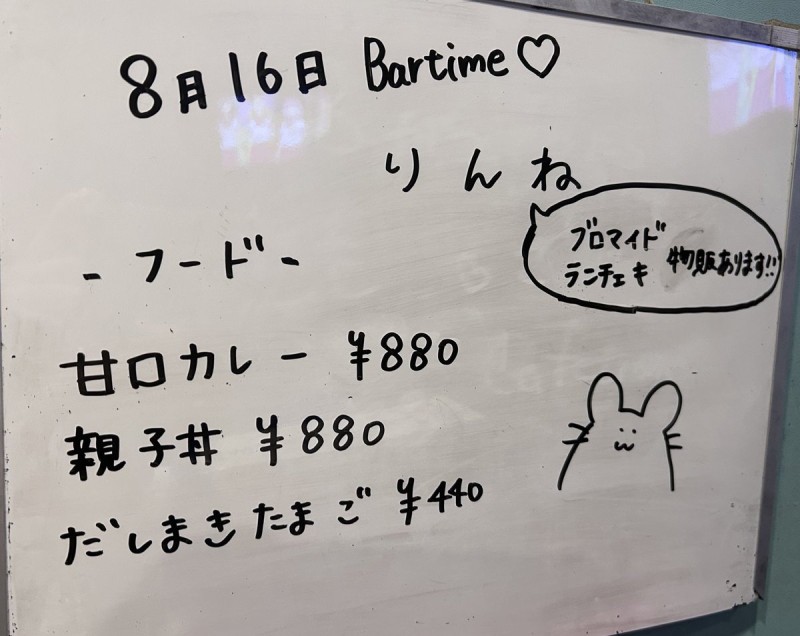 8月16日 Bartime♡
りんね
ブロマイド
ランチェキ 物販あります!!
-フード-
甘口カレー ¥880
親子丼 ¥880
だしまきたまご ¥440